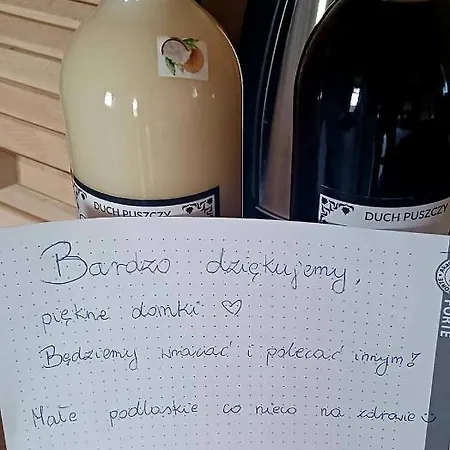 DUCH PUSZCZY
DUCH PUSZCZY
FORTE
Bardzo dziękujemy,
piękne domki ♡
Będziemy wracać i polecać innym!
Małe podlaskie co nieco na zdrowie☺